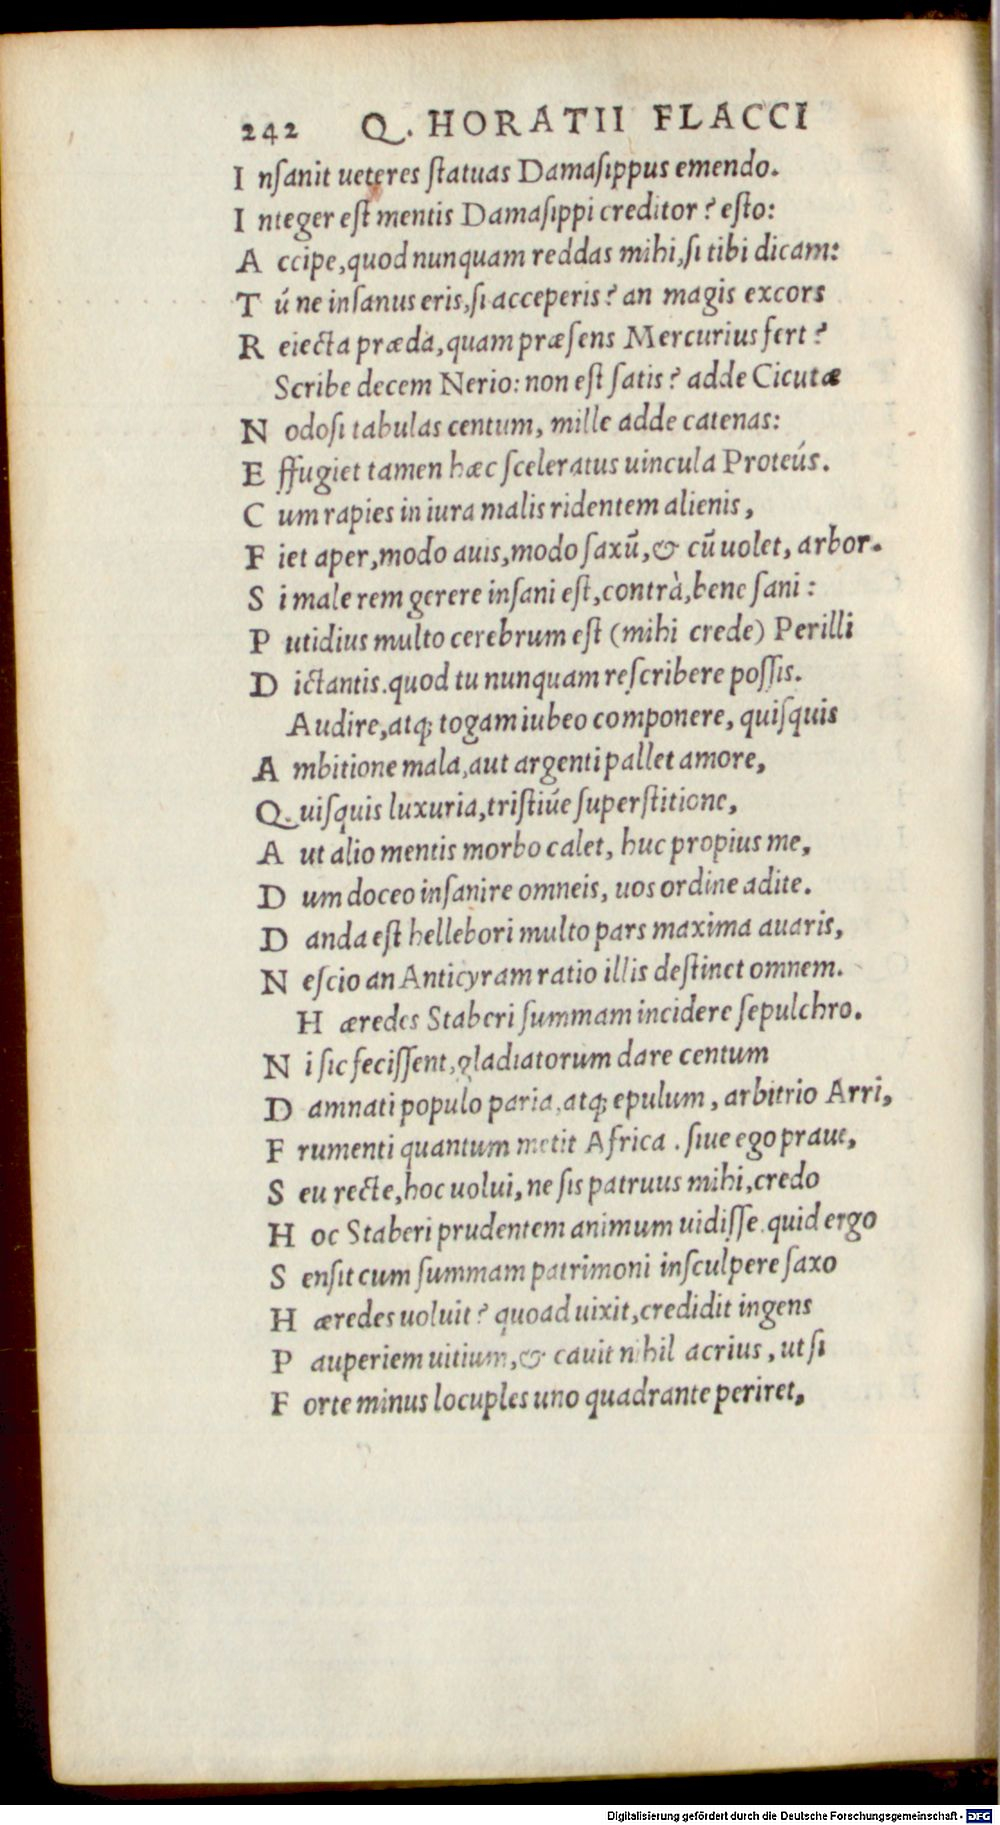 242 Q. HORATII FLACCI
I nſanit ueteres ſtatuas Damaſippus emendo.
I nteger eſt mentis Damaſippi creditor? eſto:
A ccipe, quod nunquam reddas mihi, ſi tibi dicam:
T ú ne inſanus eris, ſi acceperis? an magis excors
R eiecta præda, quam præſens Mercurius fert?
Scribe decem Nerio: non eſt ſatis? adde Cicutæ
N odoſi tabulas centum, mille adde catenas:
E ffugiet tamen hæc ſceleratus uincula Proteús.
C um rapies in iura malis ridentem alienis,
F iet aper, modo auis, modo ſaxū, & cū uolet, arbor.
S i male rem gerere inſani eſt, contrà, bene ſani:
P utidius multo cerebrum eſt (mihi crede) Perilli
D ictantis. quod tu nunquam reſcribere poſſis.
Audire, atq; togam iubeo componere, quiſquis
A mbitione mala, aut argenti pallet amore,
Q. uiſquis luxuria, triſtiúe ſuperſtitione,
A ut alio mentis morbo calet, huc propius me,
D um doceo inſanire omneis, uos ordine adite.
D anda eſt hellebori multo pars maxima auaris,
N eſcio an Anticyram ratio illis deſtinet omnem.
H æredes Staberi ſummam incidere ſepulchro.
N i ſic feciſſent, gladiatorum dare centum
D amnati populo paria, atq; epulum, arbitrio Arri,
F rumenti quantum metit Africa. ſiue ego praue,
S eu recte, hoc uolui, ne ſis patruus mihi, credo
H oc Staberi prudentem animum uidiſſe. quid ergo
S enſit cum ſummam patrimoni inſculpere ſaxo
H æredes uoluit? quoad uixit, credidit ingens
P auperiem uitium, & cauit nihil acrius, ut ſi
F orte minus locuples uno quadrante periret,
Digitalisierung gefördert durch die Deutsche Forschungsgemeinschaft - DFG